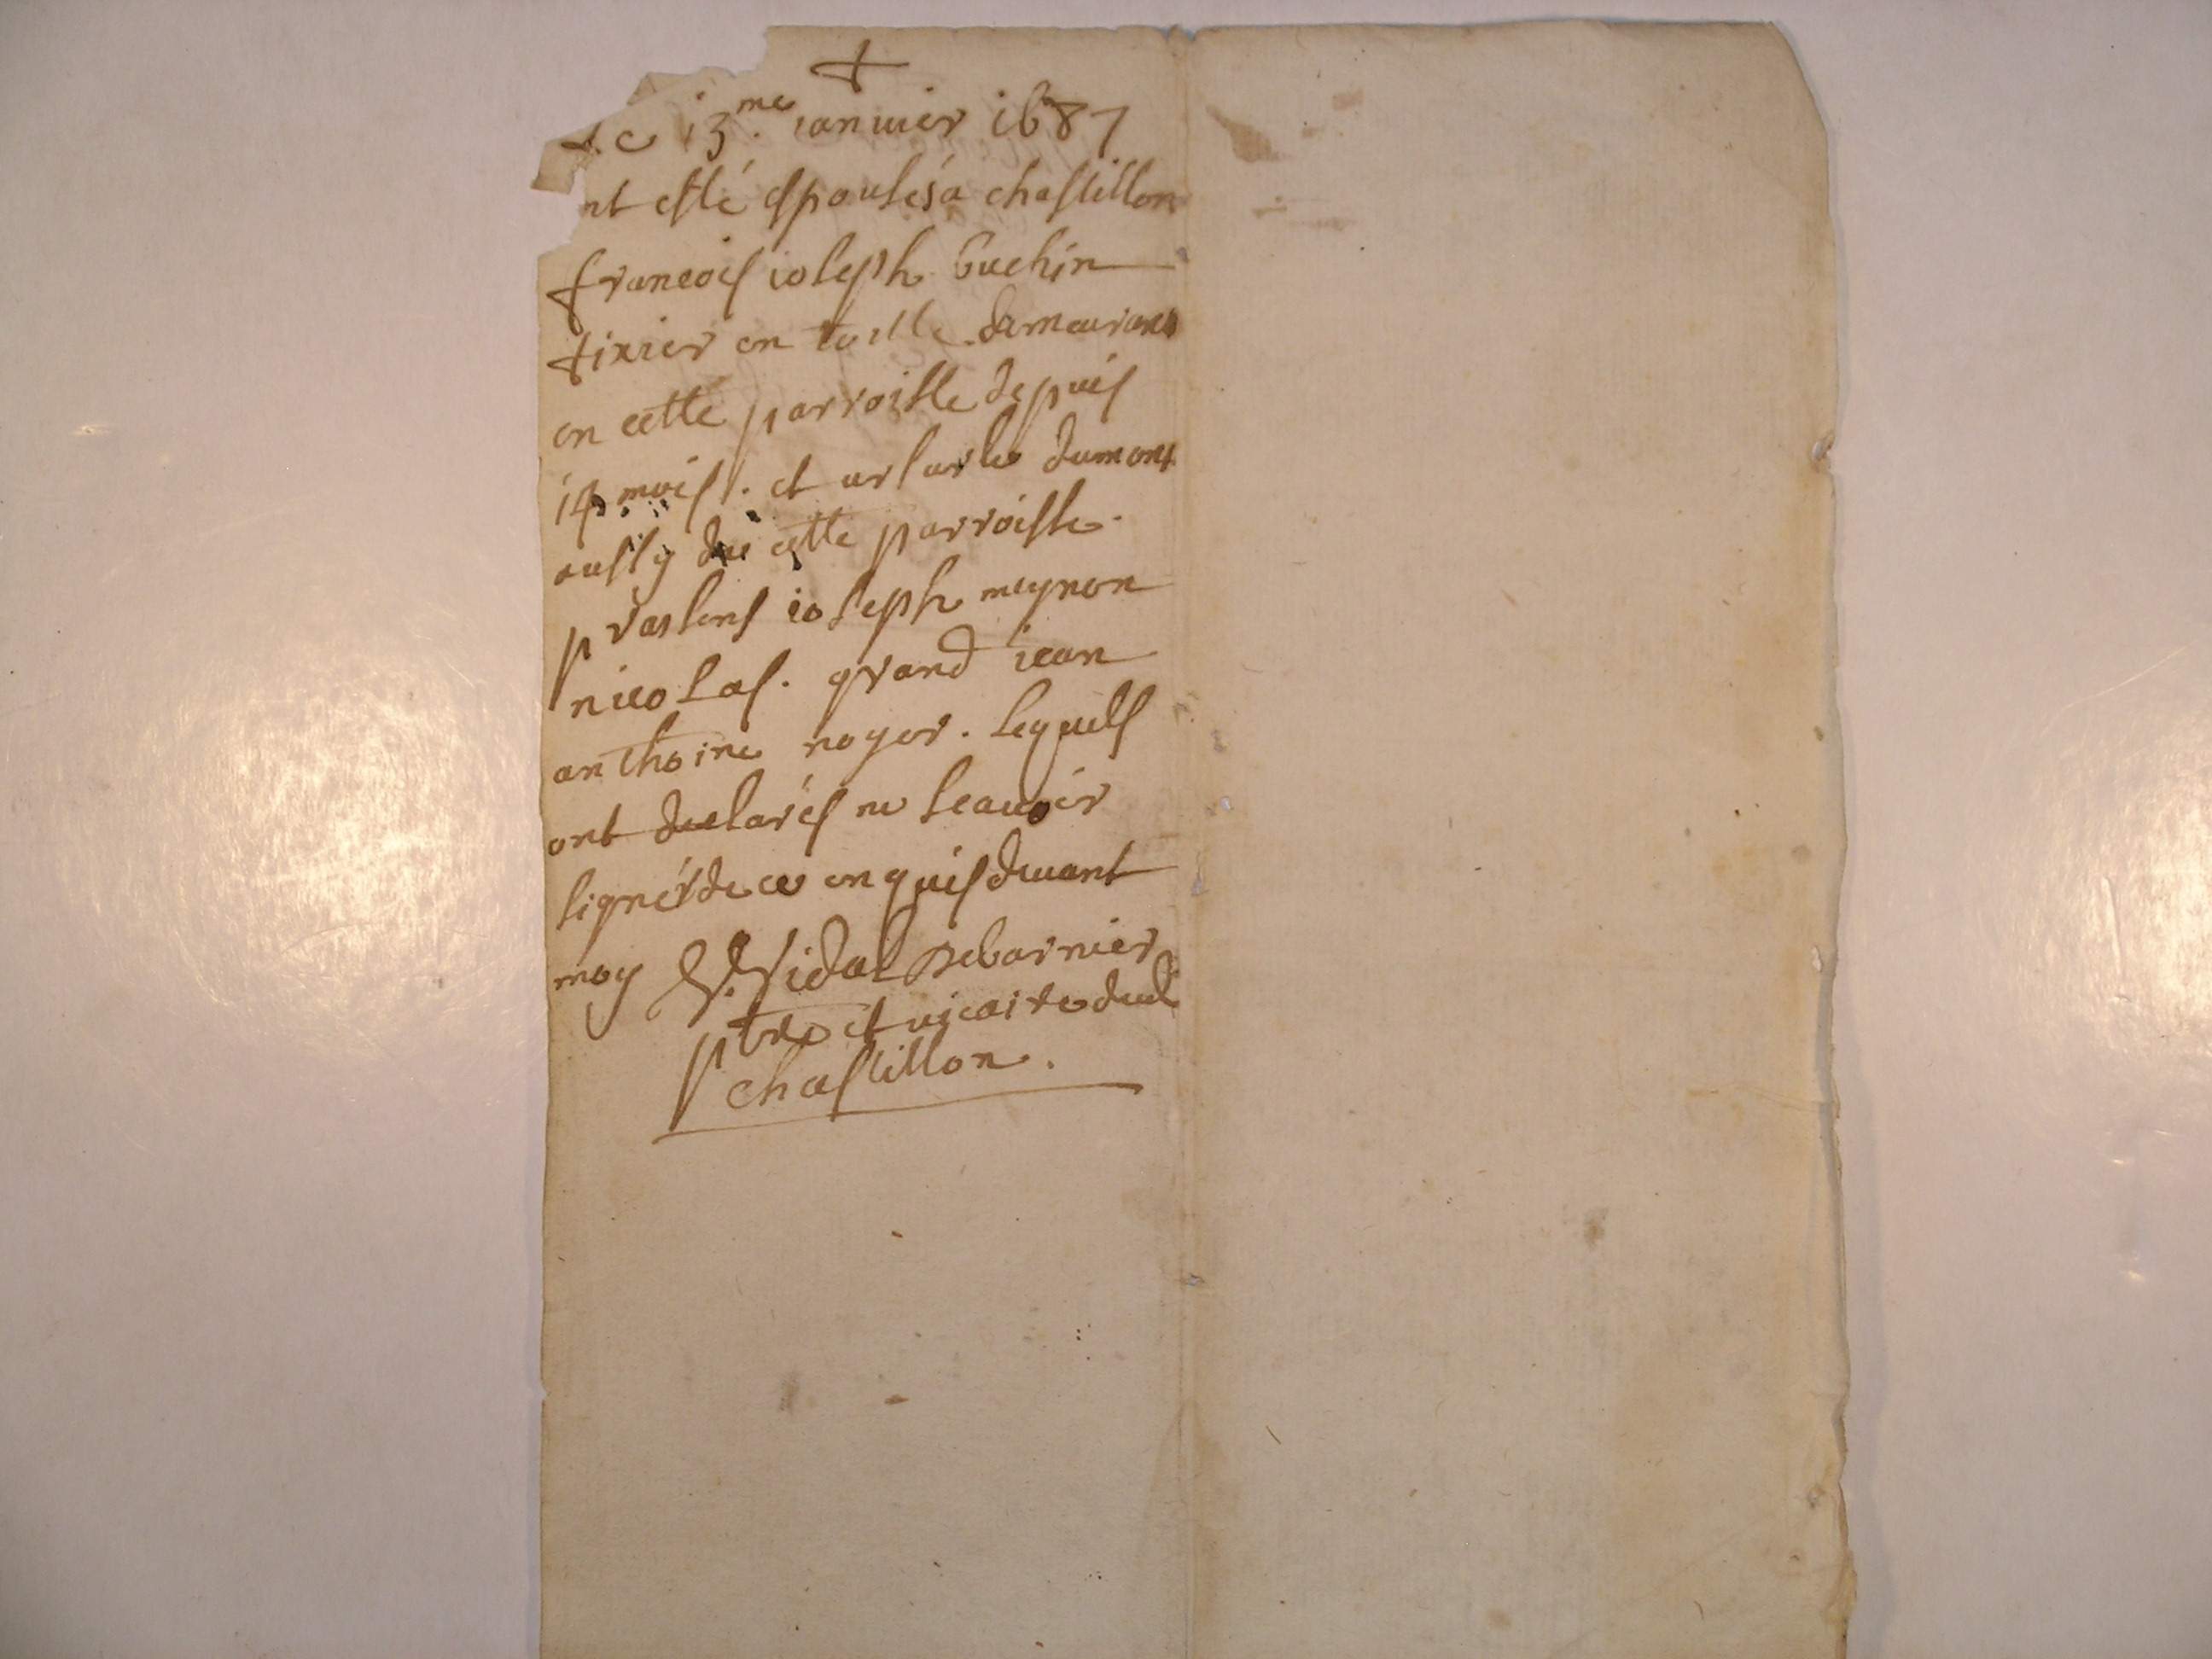 +
Le 13.me ianuier 1687
nt esté espousés a chastillon
francois ioseph buchin
tixier en toille demeurant
en cette parroisse depuis
14 mois. et ursule dumont
aussy de cette parroisse.
præsens ioseph meynon
nicolas. grand iean
anthoine noyer. lequels
ont declarés ne scauoir
signér de ce enquis deuant
moy V. Vidal Debarnier
ptre et vicaire dud
chastillon.